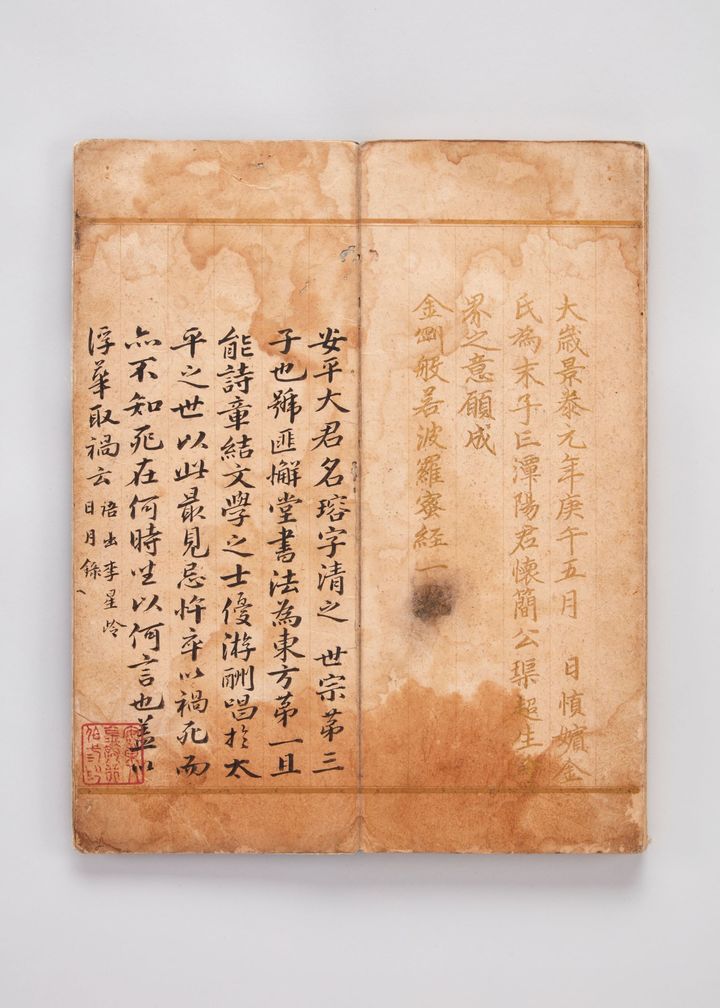 大歲景泰元年庚午五月 日愼嬪金
氏為末子亡潭陽君懷簡公渠超生
界之意願成
金剛般若波羅蜜經一
安平大君名瑢字清之 世宗第三
子也號匪懈堂書法為東方第一且
能詩章結文學之士優游酬唱於太
平之世以此最見忌忤卒以禍死而
亦不知死在何時坐以何言也蓋以
浮華取禍云 語出李星岭
日月錄